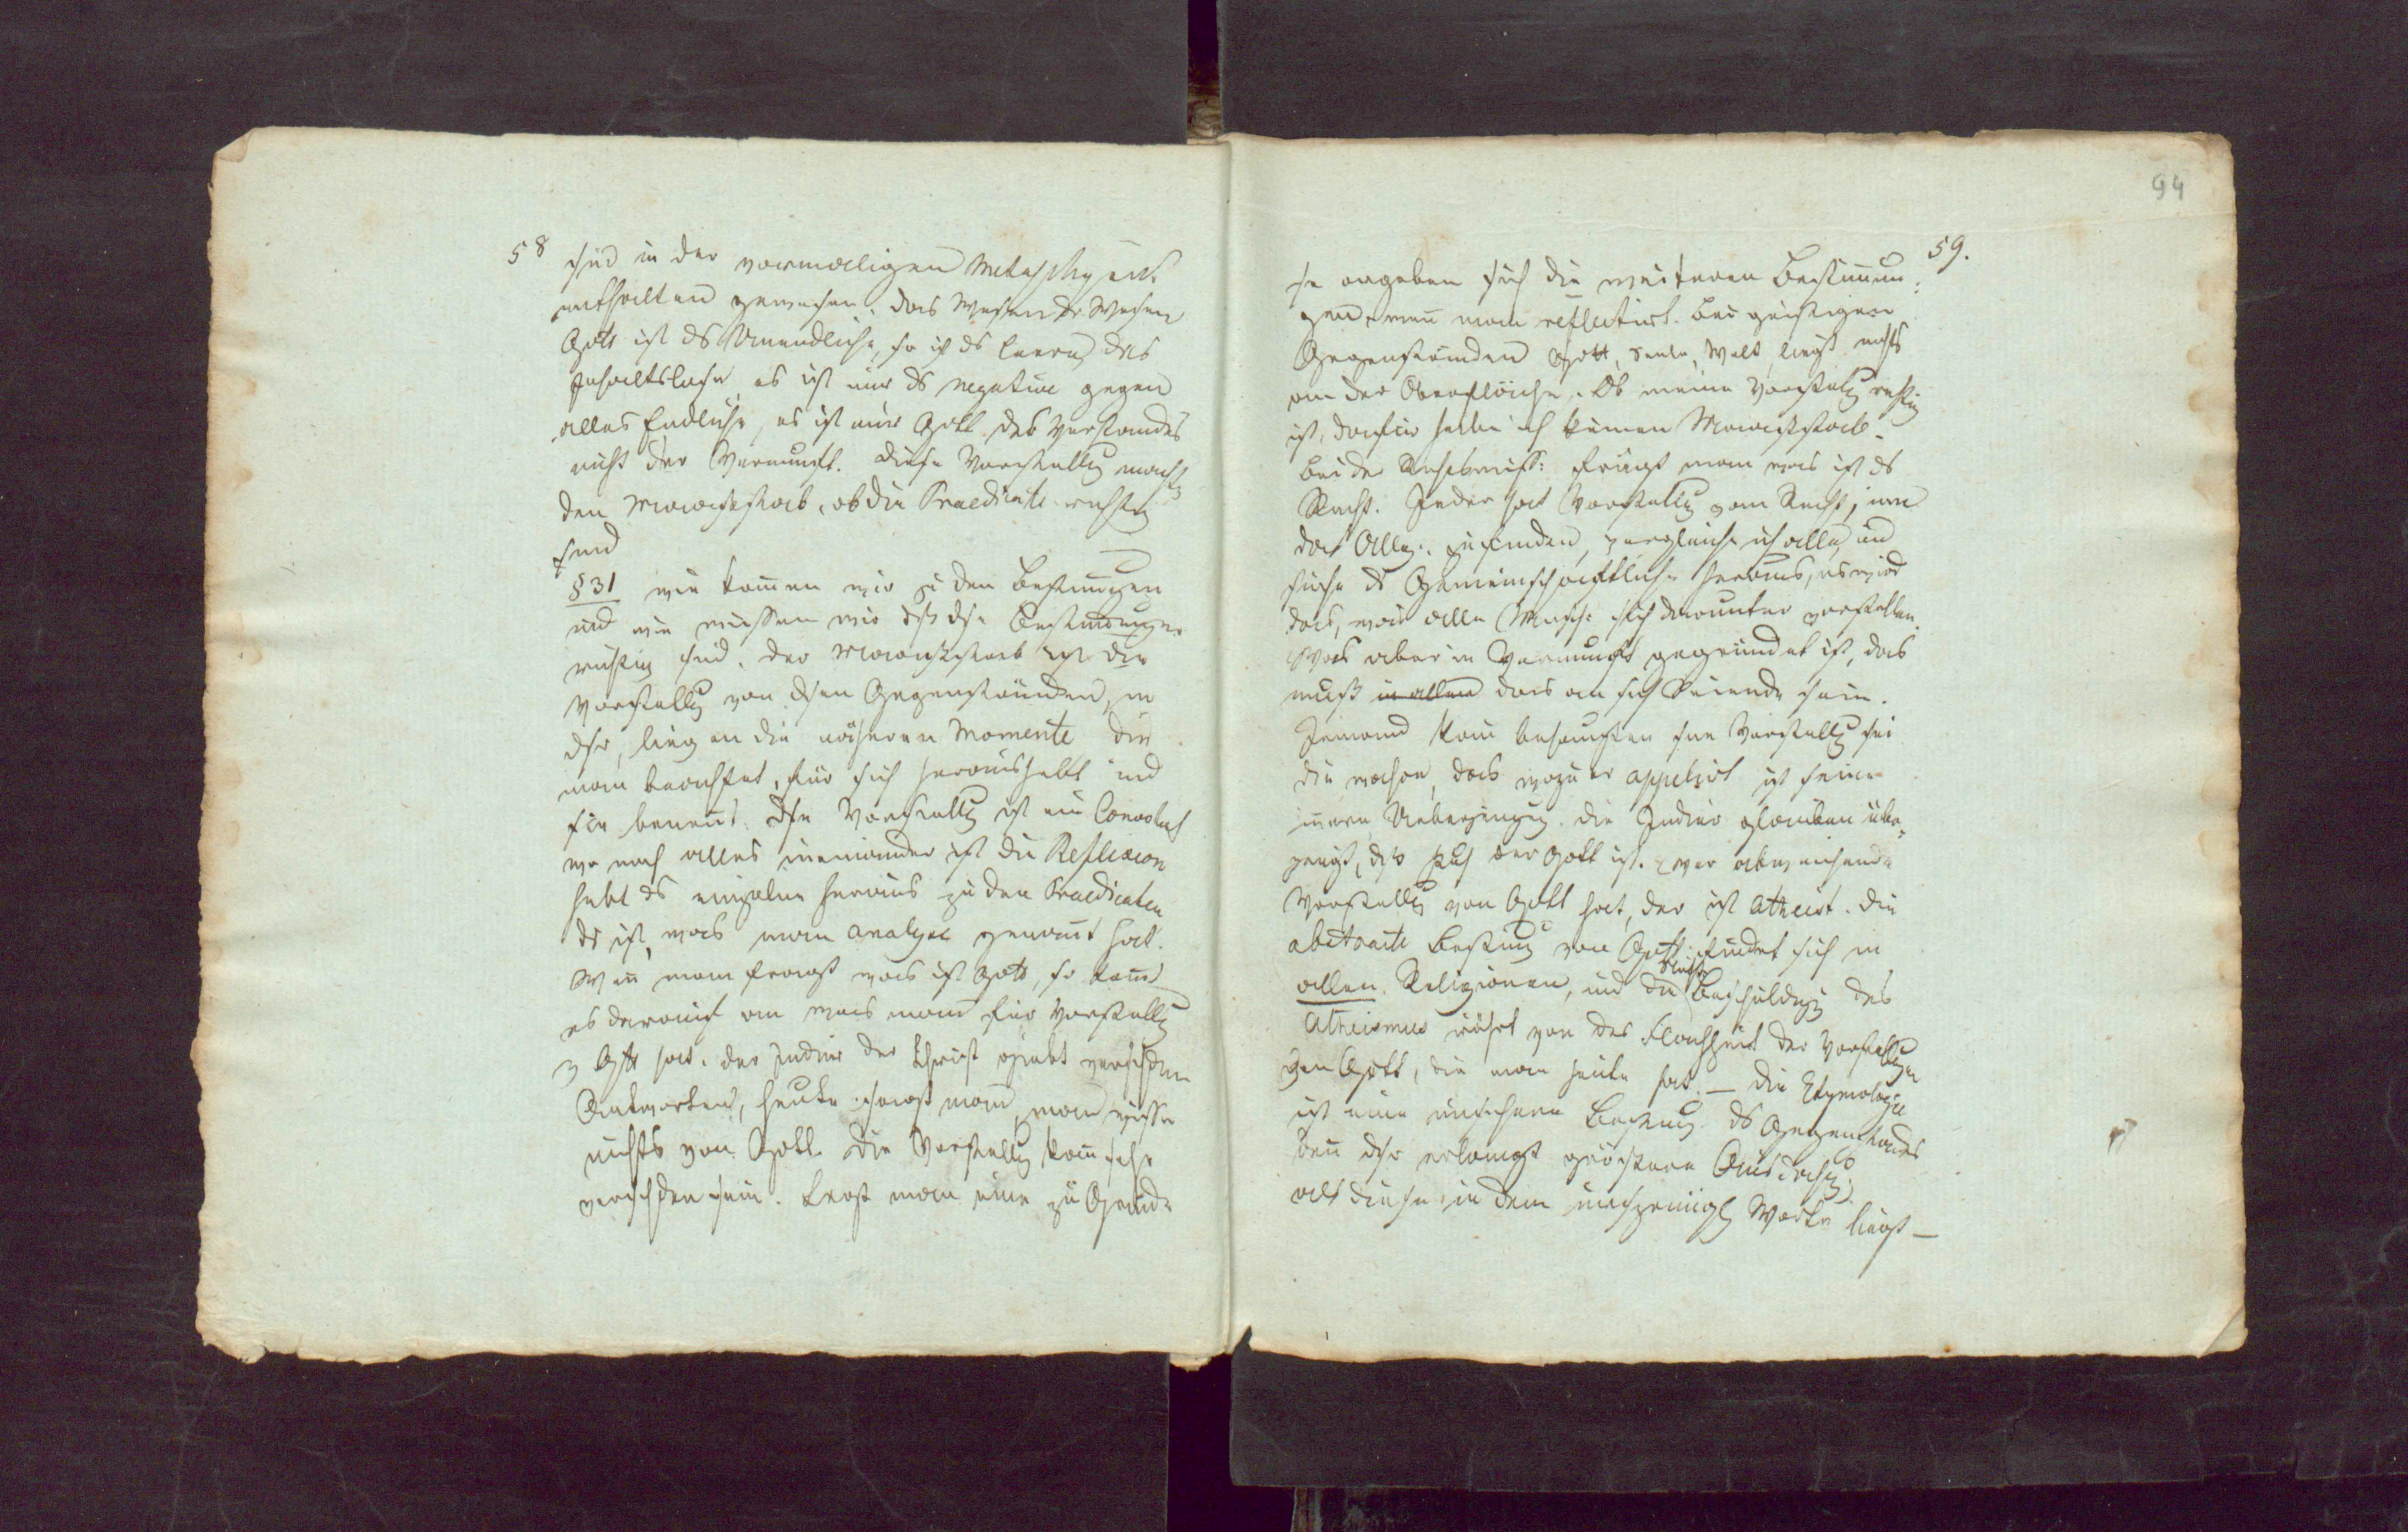 58
sind in der vormaligen Metaphysik
enthalten gewesen. das Wesen der Wesen
Gott ist ds Unendliche, so ist ds leere, das
Inhaltslose, es ist nur ds negative gegen
alles Endliche, es ist nur Gott des Verstandes
nicht der Vernunft. diese Vorstellg macht
den Maaßstab, ob die Praedicate richtig
sind
§31 wie kom̄en wir zu den Bestim̄ungen
und wie wissen wir dß dse Bestim̄ungen
richtig sind. der Maaßstab ist die
Vorstellg von dsen Gegenständen, in
dsr, liegen die näheren Momente die
man beachtet, für sich heraushebt und
sie benen̄t. Dse Vorstellg ist ein
wo noch alles ineinander ist die Reflexion
hebt ds einzelne heraus zu den Praedicaten
ds ist, was man analyse genan̄t hat.
Wen̄ man fragt was ist Gott, so kom̄t
es darauf an was man für Vorstellg
v Gtt hat. der Indier der Christ giebt verschdene
Antworten, heute sagt man, man wisse
nichts von Gott. Die Vorstellg kan̄ sehr
verschden sein. Legt man eine zu Grunde
94
59.
so ergeben sich die weiteren Bestim̄un-
gen, wen̄ man reflectirt. Bei geistigen
Gegenständen Gott, Seele, Welt, liegt nichts
an der Oberfläche. Ob meine Vorstellg richtig
ist, dafür habe ich keinen Maaßstab.
Bei der Rechtswiss: fragt man was ist ds
Recht. Jeder hat Vorstellg vom Recht, um
das Allg. zu finden, vergleiche ich alle, und
suche ds Gemeinschaftliche heraus, es wird
das, was alle Mensch: sich darunter vorstellen.
Was aber in Vernunft gegründet ist, das
muß in allen das an sich Seiende sein.
Jemand kan̄ behaupten sne Vorstellg sei
die wahre, das wozu er appelirt ist seine
in̄ere Ueberzeugug. die Indier glauben über-
zeugt, dß der Gott ist. wer abweichende
Vorstellg von Gott hat, der ist Atheist. die
abstracte Bestim̄g von Gott findet sich in
allen Religionen, und die Beschuldigg des
Atheismus rührt von der Flachheit der Vorstellgen
von Gott, die man heute hat. – die Etymologie
ist eine unsichere Bestim̄g ds Gegenstandes
den̄ dsr erlangt größere Ausdehng,
als diese, in dem ursprünglg Worte liegt –